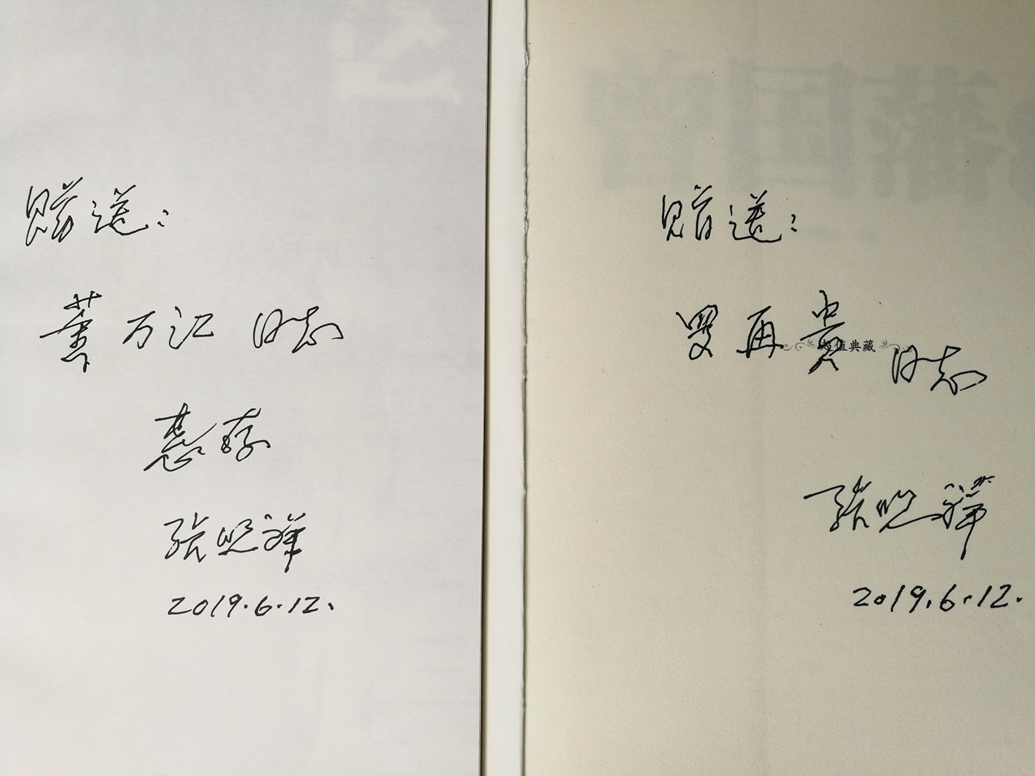 赠送：
董万江 同志
惠存
张照祥
2019.6.12.
赠送：
罗再贵 同志
超值典藏
张照祥
2019.6.12.